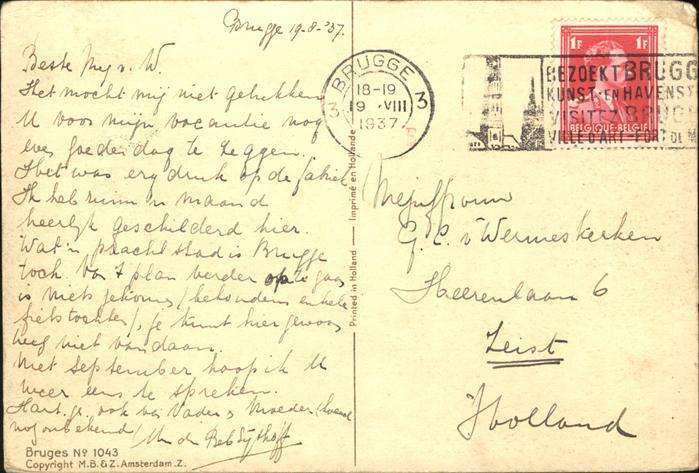 Brugge 19-8-'37.
Beste Mej v. W.
Het mocht mij niet gelukken
U voor mijn vacantie nog
even goedendag te zeggen.
Het was erg druk op de fabriek
Ik heb ruim 'n maand
heerlijk geschilderd hier.
Wat 'n prachtstad is Brugge
toch. Van 't plan verder op te gaan
is niets gekomen (behoudens enkele
fietstochten), je kunt hier gewoon
weg niet vandaan.
Met September hoop ik U
weer eens te spreken.
Hart. gr. ook van Vader & Moeder
nog onbekend)
Bruges Nº 1043
Copyright M.B. & Z. Amsterdam .Z.
Printed in Holland — Imprimé en Hollande
BRUGGE
3 3
18-19
9 ·VIII
1937
BEZOEKT BRUGG
KUNST- EN HAVENST
VISITEZ BRUG
VILLE D'ART - PORT DE M
1F 1F
BELGIQUE-BELGIË
Mejuffrouw
G. C. v Wermeskerken
Heerenlaan 6
Zeist
Holland